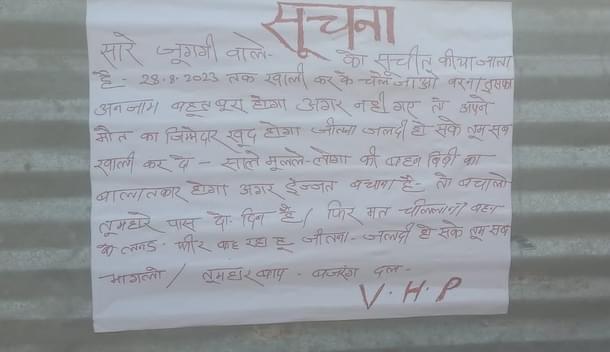 सूचना
सारे जूगगी वाले- को सूचीत कीया जाता
है - 28-8-2023 तक खाली कर के चले जाओ वरना
अनजाम बहूत बूरा होगा अगर नही गए तो अपने
मौत का जिमेदार खूद होगा जीतना जलदी हो सके तूम सब
खाली कर दो - साले मूलले-लोगो की बहन का
बालातकार होगा अगर ईज्जत बचाना है - तो बचालो
तूमहारे पास दो दिन है / फिर मत चीललाना
फीर कह रहा हू जीतना - जलदी हो सके तूम सब
भागलो / तूमहारे बाप - बजरंग दल -
V.H.P